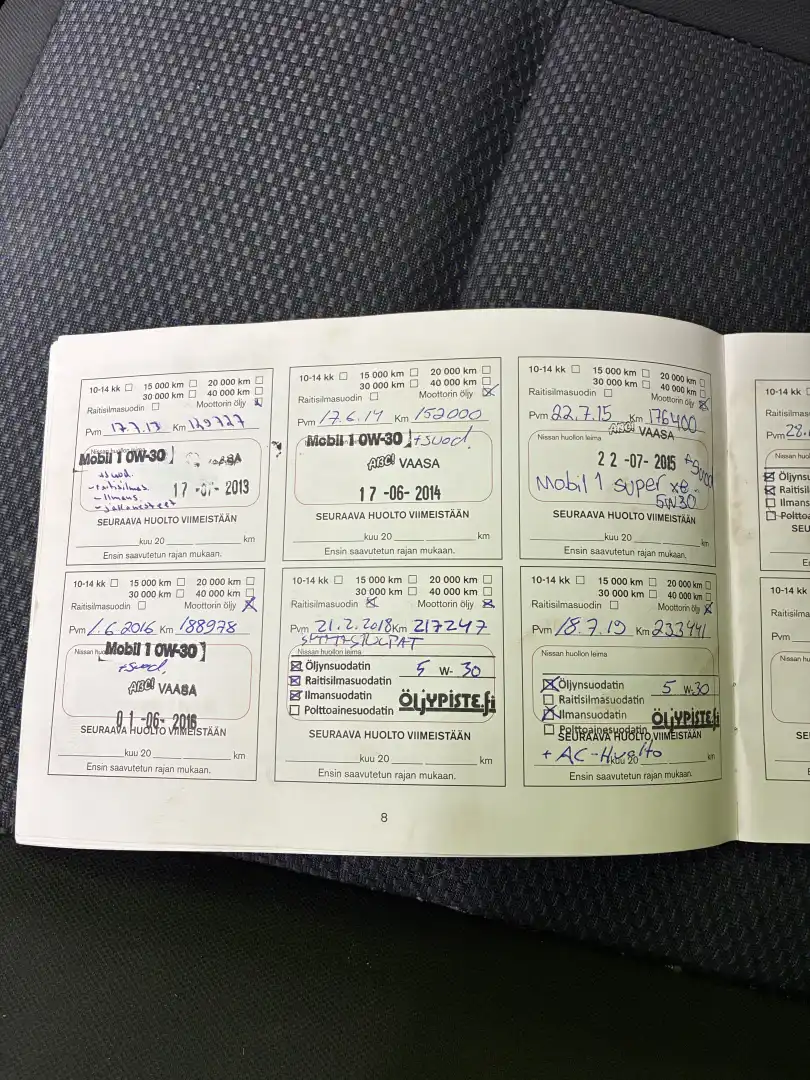 10-14 kk 15 000 km 20 000 km
30 000 km 40 000 km
Raitisilmasuodin Moottorin öljy
Pvm 17.7.13 Km 129727
Nissan huollon
Mobil 1 0W-30
+suod.
-raitisilmas
-Ilmans
17-07-2013
SEURAAVA HUOLTO VIIMEISTÄÄN
kuu 20 km
Ensin saavutetun rajan mukaan.
10-14 kk 15 000 km 20 000 km
30 000 km 40 000 km
Raitisilmasuodin Moottorin öljy
Pvm 17.6.14 Km 152000
Mobil 1 0W-30 +suod.
ABC! VAASA
17-06-2014
SEURAAVA HUOLTO VIIMEISTÄÄN
kuu 20 km
Ensin saavutetun rajan mukaan.
10-14 kk 15 000 km 20 000 km
30 000 km 40 000 km
Raitisilmasuodin Moottorin öljy
Pvm 22.7.15 Km 176400
Nissan huollon leima ABC! VAASA
22-07-2015 +suod
Mobil 1 super xe
5W30
SEURAAVA HUOLTO VIIMEISTÄÄN
kuu 20 km
Ensin saavutetun rajan mukaan.
10-14 kk
Raitisilmas
Pvm 28.
Nissan huol
Öljynsu
Raitisil
Ilmans
Poltto
SEU
10-14 kk 15 000 km 20 000 km
30 000 km 40 000 km
Raitisilmasuodin Moottorin öljy
Pvm 1.6.2016 Km 188978
Nissan huo Mobil 1 0W-30
+suod,
ABC! VAASA
01-06-2016
SEURAAVA HUOLTO VIIMEISTÄÄN
kuu 20 km
Ensin saavutetun rajan mukaan.
10-14 kk 15 000 km 20 000 km
30 000 km 40 000 km
Raitisilmasuodin Moottorin öljy
Pvm 21.2.2018 Km 217247
Nissan huollon leima
Öljynsuodatin 5 W- 30
Raitisilmasuodatin
Ilmansuodatin
Polttoainesuodatin ÖLJYPISTE.fi
SEURAAVA HUOLTO VIIMEISTÄÄN
kuu 20 km
Ensin saavutetun rajan mukaan.
10-14 kk 15 000 km 20 000 km
30 000 km 40 000 km
Raitisilmasuodin Moottorin öljy
Pvm 18.7.19 Km 233441
Nissan huollon leima
Öljynsuodatin 5 W-30
Raitisilmasuodatin
Ilmansuodatin
Polttoainesuodatin ÖLJYPISTE.fi
SEURAAVA HUOLTO VIIMEISTÄÄN
+ AC-Huolto
kuu 20 km
Ensin saavutetun rajan mukaan.
10-14 kk
Raitisilma
Pvm
Nissan huo
SE
8